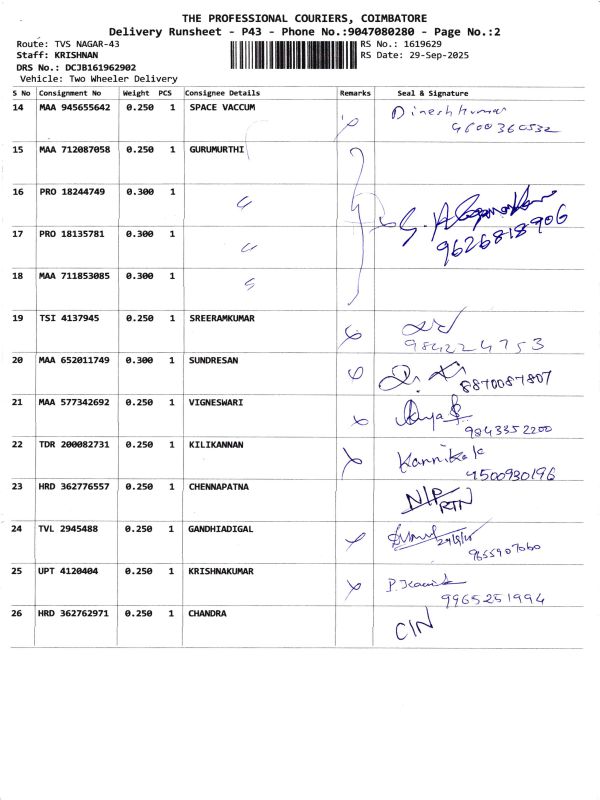 THE PROFESSIONAL COURIERS, COIMBATORE
Delivery Runsheet - P43 - Phone No.:9047080280 - Page No.:2
Route: TVS NAGAR-43 RS No.: 1619629
Staff: KRISHNAN RS Date: 29-Sep-2025
DRS No.: DCJB161962902
Vehicle: Two Wheeler Delivery
S No Consignment No Weight PCS Consignee Details Remarks Seal & Signature
14 MAA 945655642 0.250 1 SPACE VACCUM Dineshkumar
9600360532
15 MAA 712087058 0.250 1 GURUMURTHI
16 PRO 18244749 0.300 1
17 PRO 18135781 0.300 1 9626818906
18 MAA 711853085 0.300 1
19 TSI 4137945 0.250 1 SREERAMKUMAR
9842224753
20 MAA 652011749 0.300 1 SUNDRESAN
8870087807
21 MAA 577342692 0.250 1 VIGNESWARI
9843352200
22 TDR 200082731 0.250 1 KILIKANNAN Kannika k
9500930196
23 HRD 362776557 0.250 1 CHENNAPATNA N/P
RTN
24 TVL 2945488 0.250 1 GANDHIADIGAL
9655907060
25 UPT 4120404 0.250 1 KRISHNAKUMAR
9965251994
26 HRD 362762971 0.250 1 CHANDRA C/N